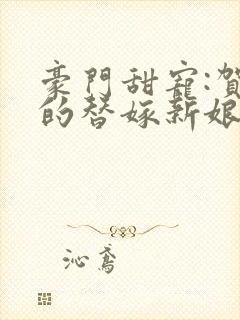 豪門甜寵:賀
的替嫁新娘
沁鸢